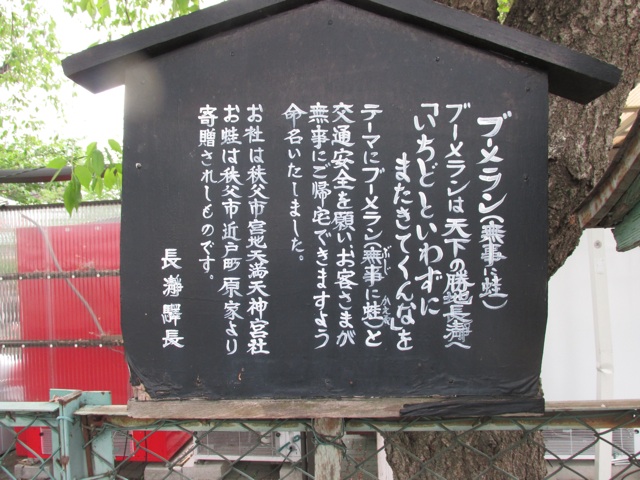 ブーメラン(無事に蛙)
ブーメランは天下の勝地長瀞へ
「いちどといわずに
またきてくんな」を
テーマにブーメラン(無事に蛙)と
ぶじ
かえる
交通安全を願い、お客さまが
無事にご帰宅できますよう
命名いたしました。
お社は秩父市宮地天満天神宮社
お蛙は秩父市近戸町原家より
寄贈されしものです。
長瀞驛長